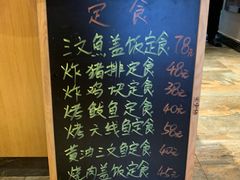 定食
三文魚盖饭定食 78元
炸猪排定食 48元
炸鸡块定食 38元
烤鲅鱼定食 40元
烤六线鱼定食 58元
黄油三文鱼定食 40元
烧肉盖饭定食 45元